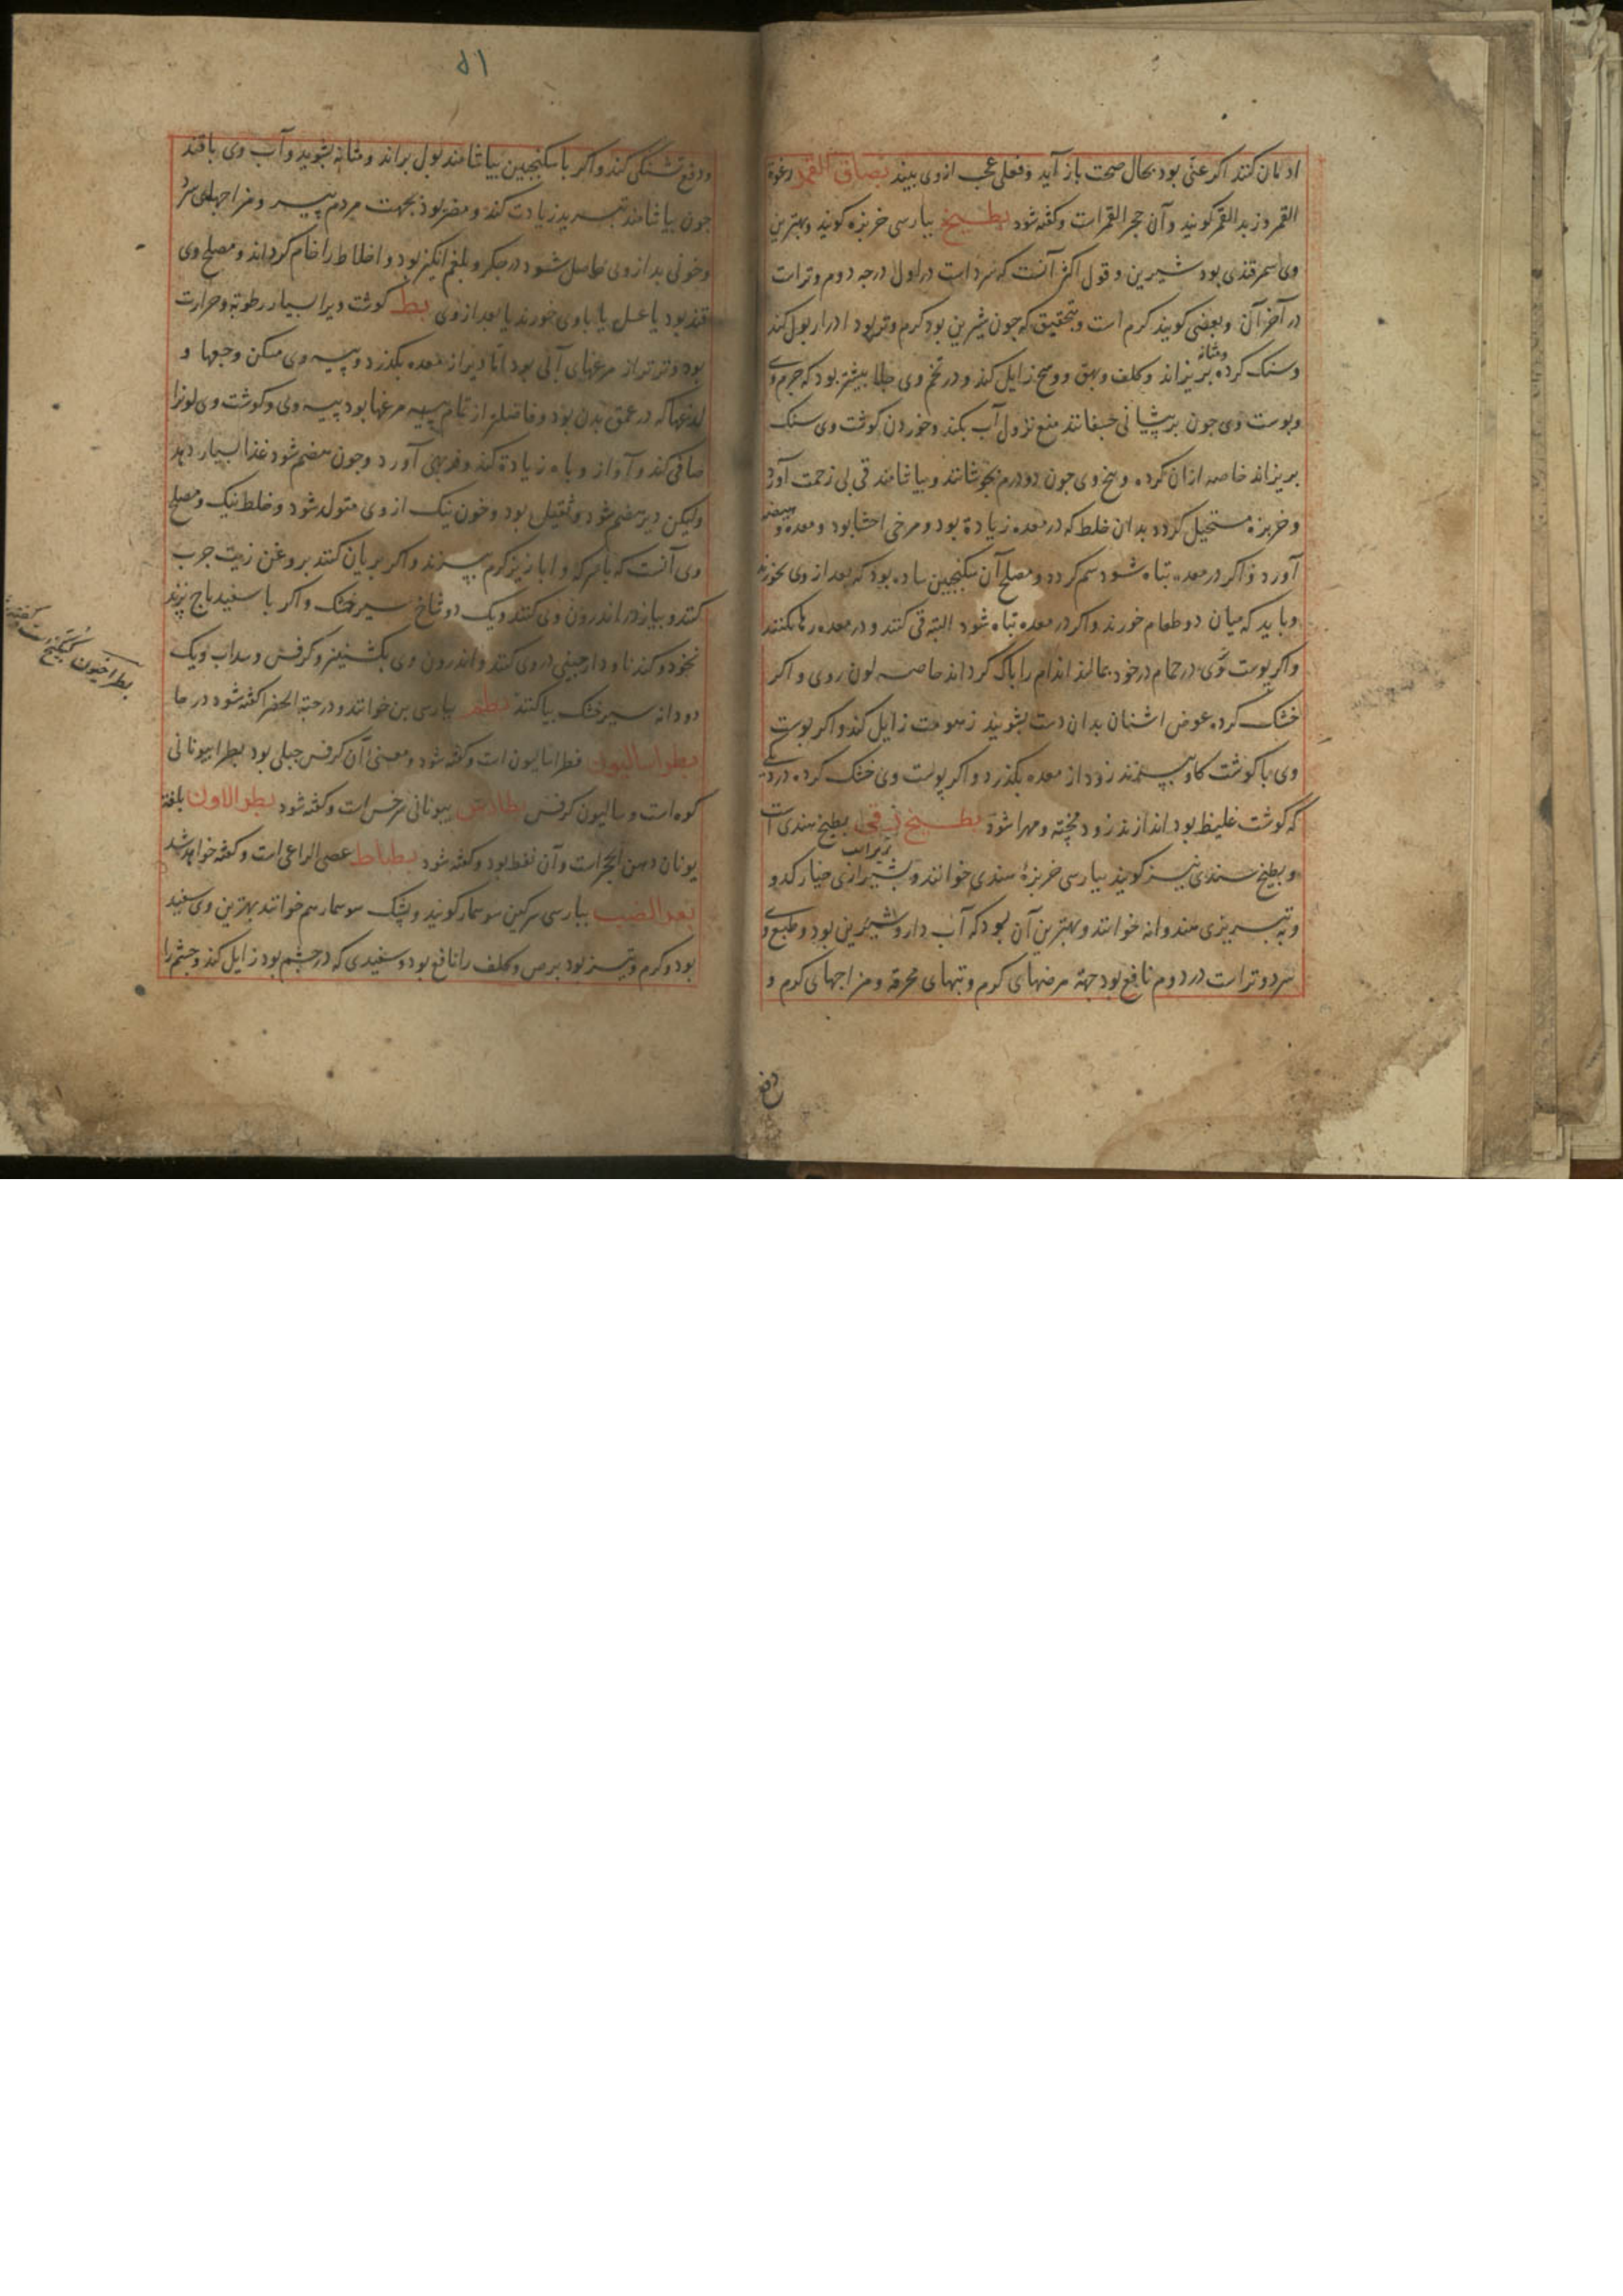 ادمان کنند اکر عنّی بود بحال صحت باز آید و فعلی عجب ازوی بیند بصاق القمر رغوة
القمر و زبد القمر کویند وآن حجر القمرات وکفته شود بطیخ بپارسی خربزه کویند وبهترین
وی سمرقندی بود شیرین و قول اکثر آنست که سرد است در اول درجه دوم وترات
در آخر آن وبعضی کویند کرم است وتحقیق که جون شیرین بود کرم وتر بود ادرار بول کند
وسنک کرده ومثانه بریزاند وکلف وبهق ووسخ زایل کند ودر تخم وی جلا بیشتر بود که جرم وی
وبوست وی جون بر پیشانی خسفانند منع نزول آب بکند وخوردن کوشت وی سنک
بریزاند خاصه ازان کرده وبیخ وی جون دو درم بجوشانند وبیاشامند قی بی زحمت آورد
وخربزه مستحیل کردد بدان خلط که در معده زیادة بود ومرخی احشا بود ومعده و هیضه
آورد واکر در معده تباه شود سم کردد ومصلح آن سکنجبین ساده بود که بعد از وی بخورند
وباید که میان دو طعام خورند واکر در معده تباه شود البته قی کنند ودر معده رها نکنند
واکر بوست وی در حمام در خود بمالند اندام را باک کرداند خاصه لون روی واکر
خشک کرده عوض اشنان بدان دست بشویند زهومت زایل کند واکر بوست
وی با کوشت کاو بپزند زود از معده بکذرد واکر پوست وی خشک کرده در دیکی
که کوشت غلیظ بود اندازند زود پخته ومهرا شود بطیخ زقی بطیخ هندی است
وبطیخ سندی نیز کویند بپارسی خربزۀ هندی خوانند وبشیرازی خیار کدو
وبه تبریزی هندوانه خوانند وبهترین آن بود که آب دار وشیرین بود وطبع وی
سرد وتر است در دوم نافع بود جهة مرضهای کرم وتبهای محرقه ومزاجهای کرم و
دفع
۵۱
ودفع تشنکی کند واکر با سکنجبین بیاشامند بول براند ومثانه بشوید وآب وی با قند
جون بیاشامند تبرید زیادت کند ومضر بود بجهت مردم پیر ومزاجهای سرد
وخونی بد از وی حاصل شود در جکر وبلغم انکیز بود واخلاط را خام کرداند ومصلح وی
قند بود یا عسل یا با وی خورند یا بعد از وی بط کوشت ویرا بسیار رطوبة وحرارت
بود وترتر از مرغهای آبی بود اما دیر از معده بکذرد وپیه وی مسکن وجعها و
لدغها که در عمق بدن بود وفاضلتر از تمام پیه مرغها بود پیه وی وکوشت وی لونرا
صافی کند وآواز وباه زیادة کند وفربهی آورد وجون هضم شود غذا بسیار دهد
ولیکن دیر هضم شود وثقیل بود وخون نیک از وی متولد شود وخلط نیک ومصلح
وی آنست که با سرکه وابازیز کرم بپزند واکر بریان کنند بروغن زیت جرب
کنند وپیاز در اندرون وی کنند ویک دو شاخ سیر خشک واکر با سفیدباج پزند
نخود وکندنا ودارچینی در وی کنند واندرون وی بکشنیز وکرفس وسداب ویک
دو دانه سیر خشک بیاکنند بطم بپارسی بن خوانند ودر حبة الخضرا کفته شود در حا
بطراسالیون فطراسالیون است وکفته شود ومعنی آن کرفس جبلی بود بطرا بیونانی
کوه است وسالیون کرفس بطارس بیونانی سرخس است وکفته شود بطرالاون بلغة
یونان دهن الحجر است وآن نفط بود وکفته شود بطباط عصی الراعی است وکفته خواهد شد
بعر الضب بپارسی سرکین سوسمار کویند وپشک سوسمار هم خوانند بهترین وی سفید
بود وکرم وتیز بود برص وکلف را نافع بود وسفیدی که در چشم بود زایل کند وحشم را
بطراخیون کبیکج است وکفته شد